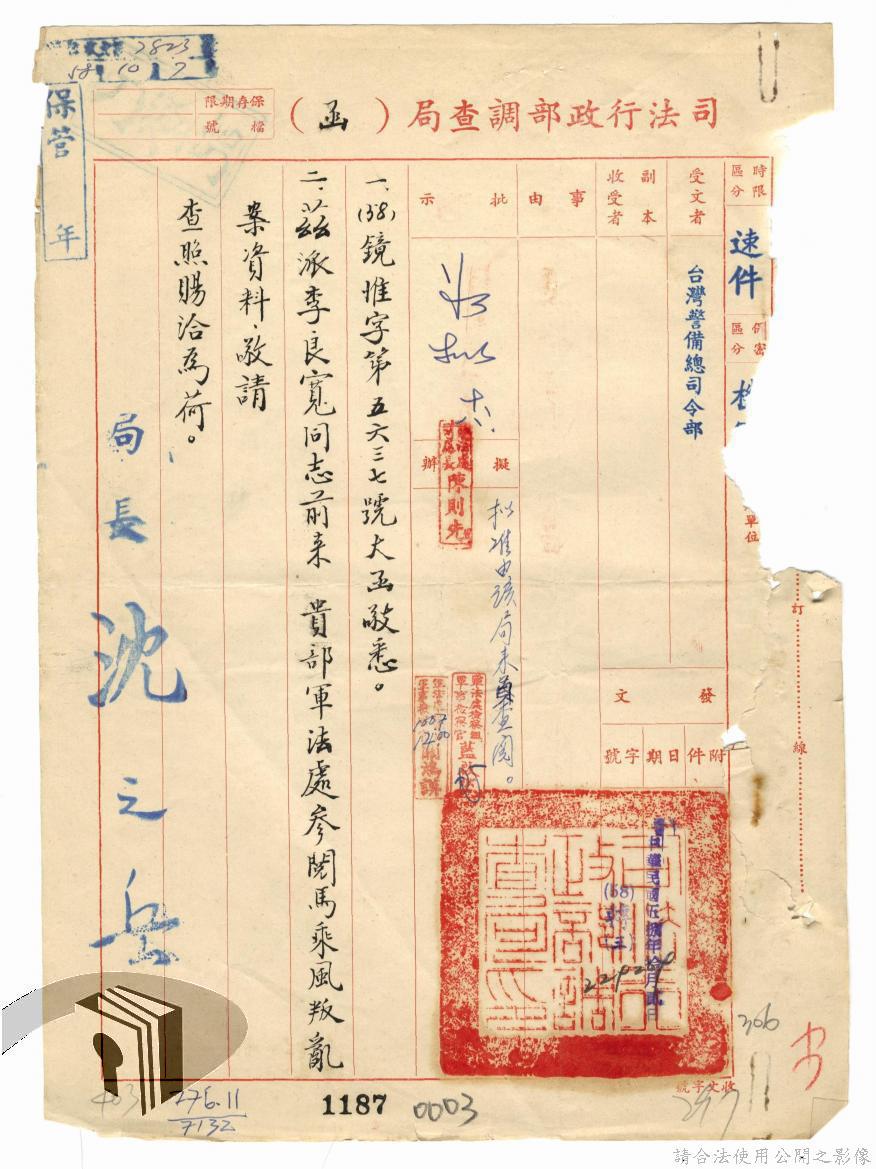 司法行政部調查局（函）
保存期限
檔號
2823
58 10 7
保管 年
時限區分
速件
區分
受文者
台灣警備總司令部
副本收受者
事由
批示
擬辦
陳則先
單位
發文
附件
日期
字號
訂
線
擬准由該局來員查閱。
一、(58)鏡惟字第五六三七號大函敬悉。
二、茲派李良寬同志前來 貴部軍法處參閱馬乘風叛亂
案資料，敬請
查照賜洽為荷。
局長 沈之岳
中華民國伍捌年拾月貳日
(58)
收文字號
306
403
776.11
7132
1187
0003
請合法使用公開之影像